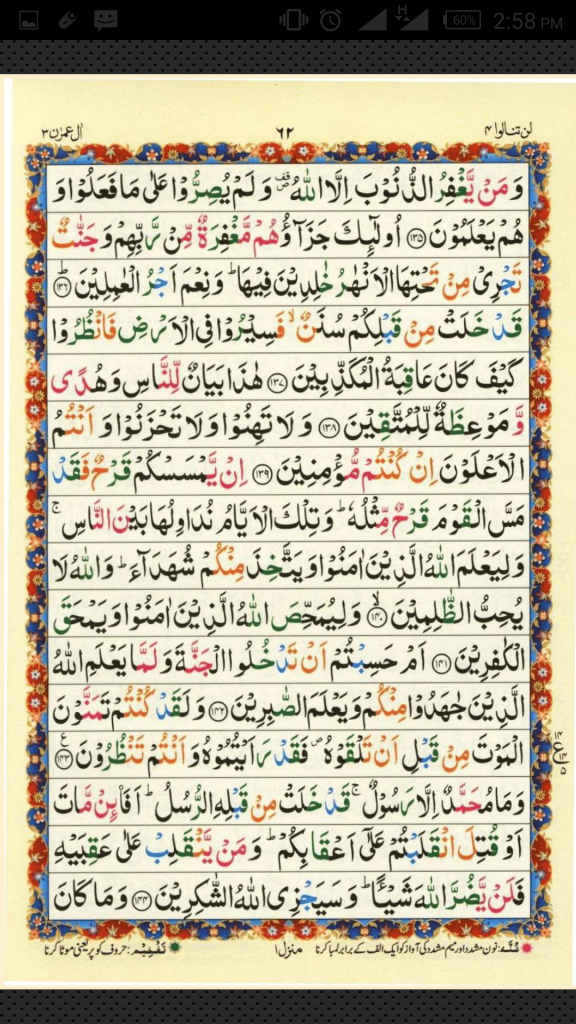 60% 2:58 PM
لن تنالوا ۴ ۶۲ اٰل عمرٰن ۳
وَ مَنۡ یَّغۡفِرُ الذُّنُوۡبَ اِلَّا اللّٰهُ ۪۟ وَ لَمۡ یُصِرُّوۡا عَلٰی مَا فَعَلُوۡا وَ
هُمۡ یَعۡلَمُوۡنَ ﴿۱۳۵﴾ اُولٰٓئِكَ جَزَآؤُهُمۡ مَّغۡفِرَةٌ مِّنۡ رَّبِّهِمۡ وَ جَنّٰتٌ
تَجۡرِیۡ مِنۡ تَحۡتِهَا الۡاَنۡهٰرُ خٰلِدِیۡنَ فِیۡهَا ؕ وَ نِعۡمَ اَجۡرُ الۡعٰمِلِیۡنَ ﴿۱۳۶﴾ؕ
قَدۡ خَلَتۡ مِنۡ قَبۡلِكُمۡ سُنَنٌ ۙ فَسِیۡرُوۡا فِی الۡاَرۡضِ فَانۡظُرُوۡا
كَیۡفَ كَانَ عَاقِبَةُ الۡمُكَذِّبِیۡنَ ﴿۱۳۷﴾ هٰذَا بَیَانٌ لِّلنَّاسِ وَ هُدًی
وَّ مَوۡعِظَةٌ لِّلۡمُتَّقِیۡنَ ﴿۱۳۸﴾ وَ لَا تَهِنُوۡا وَ لَا تَحۡزَنُوۡا وَ اَنۡتُمُ
الۡاَعۡلَوۡنَ اِنۡ كُنۡتُمۡ مُّؤۡمِنِیۡنَ ﴿۱۳۹﴾ اِنۡ یَّمۡسَسۡكُمۡ قَرۡحٌ فَقَدۡ
مَسَّ الۡقَوۡمَ قَرۡحٌ مِّثۡلُهٗ ؕ وَ تِلۡكَ الۡاَیَّامُ نُدَاوِلُهَا بَیۡنَ النَّاسِ ۚ
وَ لِیَعۡلَمَ اللّٰهُ الَّذِیۡنَ اٰمَنُوۡا وَ یَتَّخِذَ مِنۡكُمۡ شُهَدَآءَ ؕ وَ اللّٰهُ لَا
یُحِبُّ الظّٰلِمِیۡنَ ﴿۱۴۰﴾ۙ وَ لِیُمَحِّصَ اللّٰهُ الَّذِیۡنَ اٰمَنُوۡا وَ یَمۡحَقَ
الۡكٰفِرِیۡنَ ﴿۱۴۱﴾ اَمۡ حَسِبۡتُمۡ اَنۡ تَدۡخُلُوا الۡجَنَّةَ وَ لَمَّا یَعۡلَمِ اللّٰهُ
الَّذِیۡنَ جٰهَدُوۡا مِنۡكُمۡ وَ یَعۡلَمَ الصّٰبِرِیۡنَ ﴿۱۴۲﴾ وَ لَقَدۡ كُنۡتُمۡ تَمَنَّوۡنَ
الۡمَوۡتَ مِنۡ قَبۡلِ اَنۡ تَلۡقَوۡهُ ۪ فَقَدۡ رَاَیۡتُمُوۡهُ وَ اَنۡتُمۡ تَنۡظُرُوۡنَ ﴿۱۴۳﴾
وَ مَا مُحَمَّدٌ اِلَّا رَسُوۡلٌ ۚ قَدۡ خَلَتۡ مِنۡ قَبۡلِهِ الرُّسُلُ ؕ اَفَا۠ئِنۡ مَّاتَ
اَوۡ قُتِلَ انۡقَلَبۡتُمۡ عَلٰۤی اَعۡقَابِكُمۡ ؕ وَ مَنۡ یَّنۡقَلِبۡ عَلٰی عَقِبَیۡهِ
فَلَنۡ یَّضُرَّ اللّٰهَ شَیۡـًٔا ؕ وَ سَیَجۡزِی اللّٰهُ الشّٰكِرِیۡنَ ﴿۱۴۴﴾ وَ مَا كَانَ
غُنَّہ: نون مشدد اور میم مشدد کی آواز کو ایک الف کے برابر لمبا کرنا منزل ۱ تَفْخِيم: حروف کو پُر یعنی موٹا کرنا